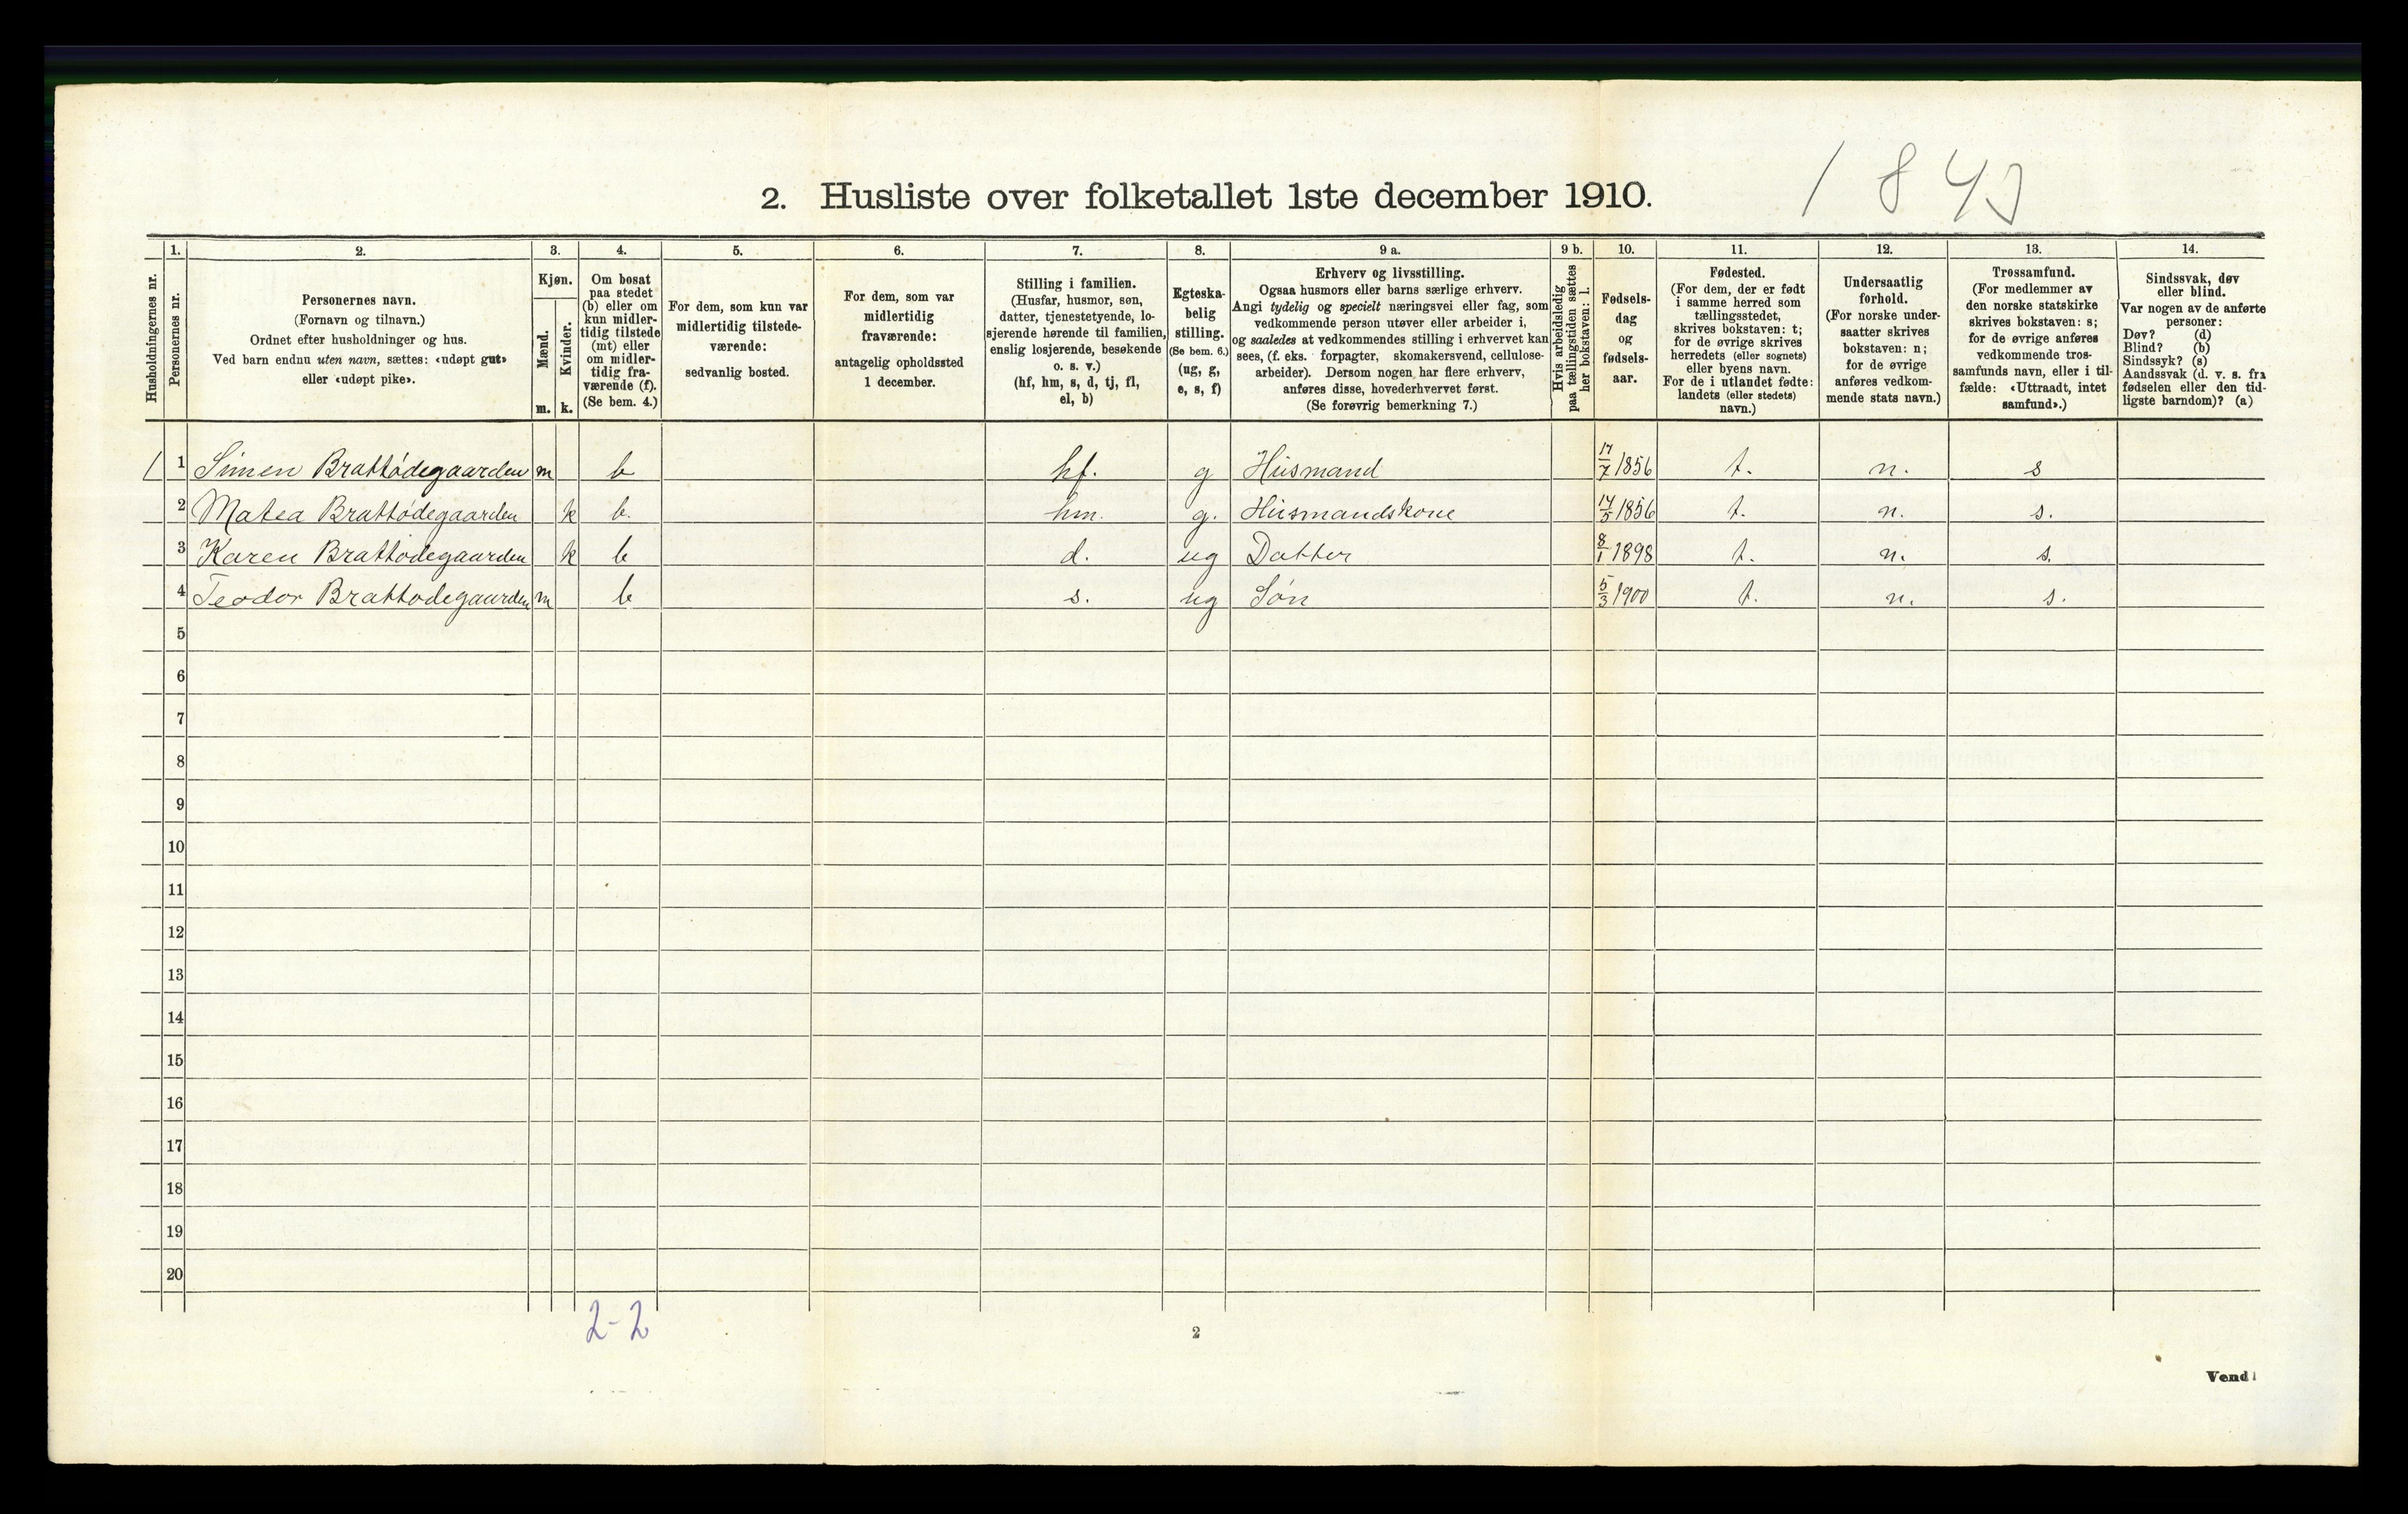 1843
2. Husliste over folketallet 1ste december 1910.
1. 2. 3. 4. 5. 6. 7. 8. 9 a. 9 b. 10. 11. 12. 13. 14.
Husholdningernes nr.
Personernes nr.
Personernes navn.
(Fornavn og tilnavn.)
Ordnet efter husholdninger og hus.
Ved barn endnu uten navn, sættes: «udøpt gut»
eller «udøpt pike».
Kjøn.
Mænd.
Kvinder.
m. k.
Om bosat
paa stedet
(b) eller om
kun midler-
tidig tilstede
(mt) eller
om midler-
tidig fra-
værende (f).
(Se bem. 4.)
For dem, som kun var
midlertidig tilstede-
værende:
sedvanlig bosted.
For dem, som var
midlertidig
fraværende:
antagelig opholdssted
1 december.
Stilling i familien.
(Husfar, husmor, søn,
datter, tjenestetyende, lo-
sjerende hørende til familien,
enslig losjerende, besøkende
o. s. v.)
(hf, hm, s, d, tj, fl,
el, b)
Egteska-
belig
stilling.
(Se bem. 6.)
(ug, g,
e, s, f)
Erhverv og livsstilling.
Ogsaa husmors eller barns særlige erhverv.
Angi tydelig og specielt næringsvei eller fag, som
vedkommende person utøver eller arbeider i,
og saaledes at vedkommendes stilling i erhvervet kan
sees, (f. eks. forpagter, skomakersvend, cellulose-
arbeider). Dersom nogen har flere erhverv,
anføres disse, hovederhvervet først.
(Se forøvrig bemerkning 7.)
Hvis arbeidsledig
paa tællingstiden sættes
her bokstaven: l.
Fødsels-
dag
og
fødsels-
aar.
Fødested.
(For dem, der er født
i samme herred som
tællingsstedet,
skrives bokstaven: t;
for de øvrige skrives
herredets (eller sognets)
eller byens navn.
For de i utlandet fødte:
landets (eller stedets)
navn.)
Undersaatlig
forhold.
(For norske under-
saatter skrives
bokstaven: n;
for de øvrige
anføres vedkom-
mende stats navn.)
Trossamfund.
(For medlemmer av
den norske statskirke
skrives bokstaven: s;
for de øvrige anføres
vedkommende tros-
samfunds navn, eller i til-
fælde: «Uttraadt, intet
samfund».)
Sindssvak, døv
eller blind.
Var nogen av de anførte
personer:
Døv? (d)
Blind? (b)
Sindssyk? (s)
Aandssvak (d. v. s. fra
fødselen eller den tid-
ligste barndom)? (a)
1 1 Simen Brattödegaarden m b hf. g Husmand 17/7 1856 t. n. s
2 Matea Brattödegaarden k b. hm. g. Husmandskone 14/5 1856 t. n. s.
3 Karen Brattödegaarden k b d. ug Datter 8/1 1898 t. n. s.
4 Teodor Brattodegaarden m b s. ug Sön 5/3 1900 t. n. s.
5
6
7
8
9
10
11
12
13
14
15
16
17
18
19
20
2-2
2
Vend!